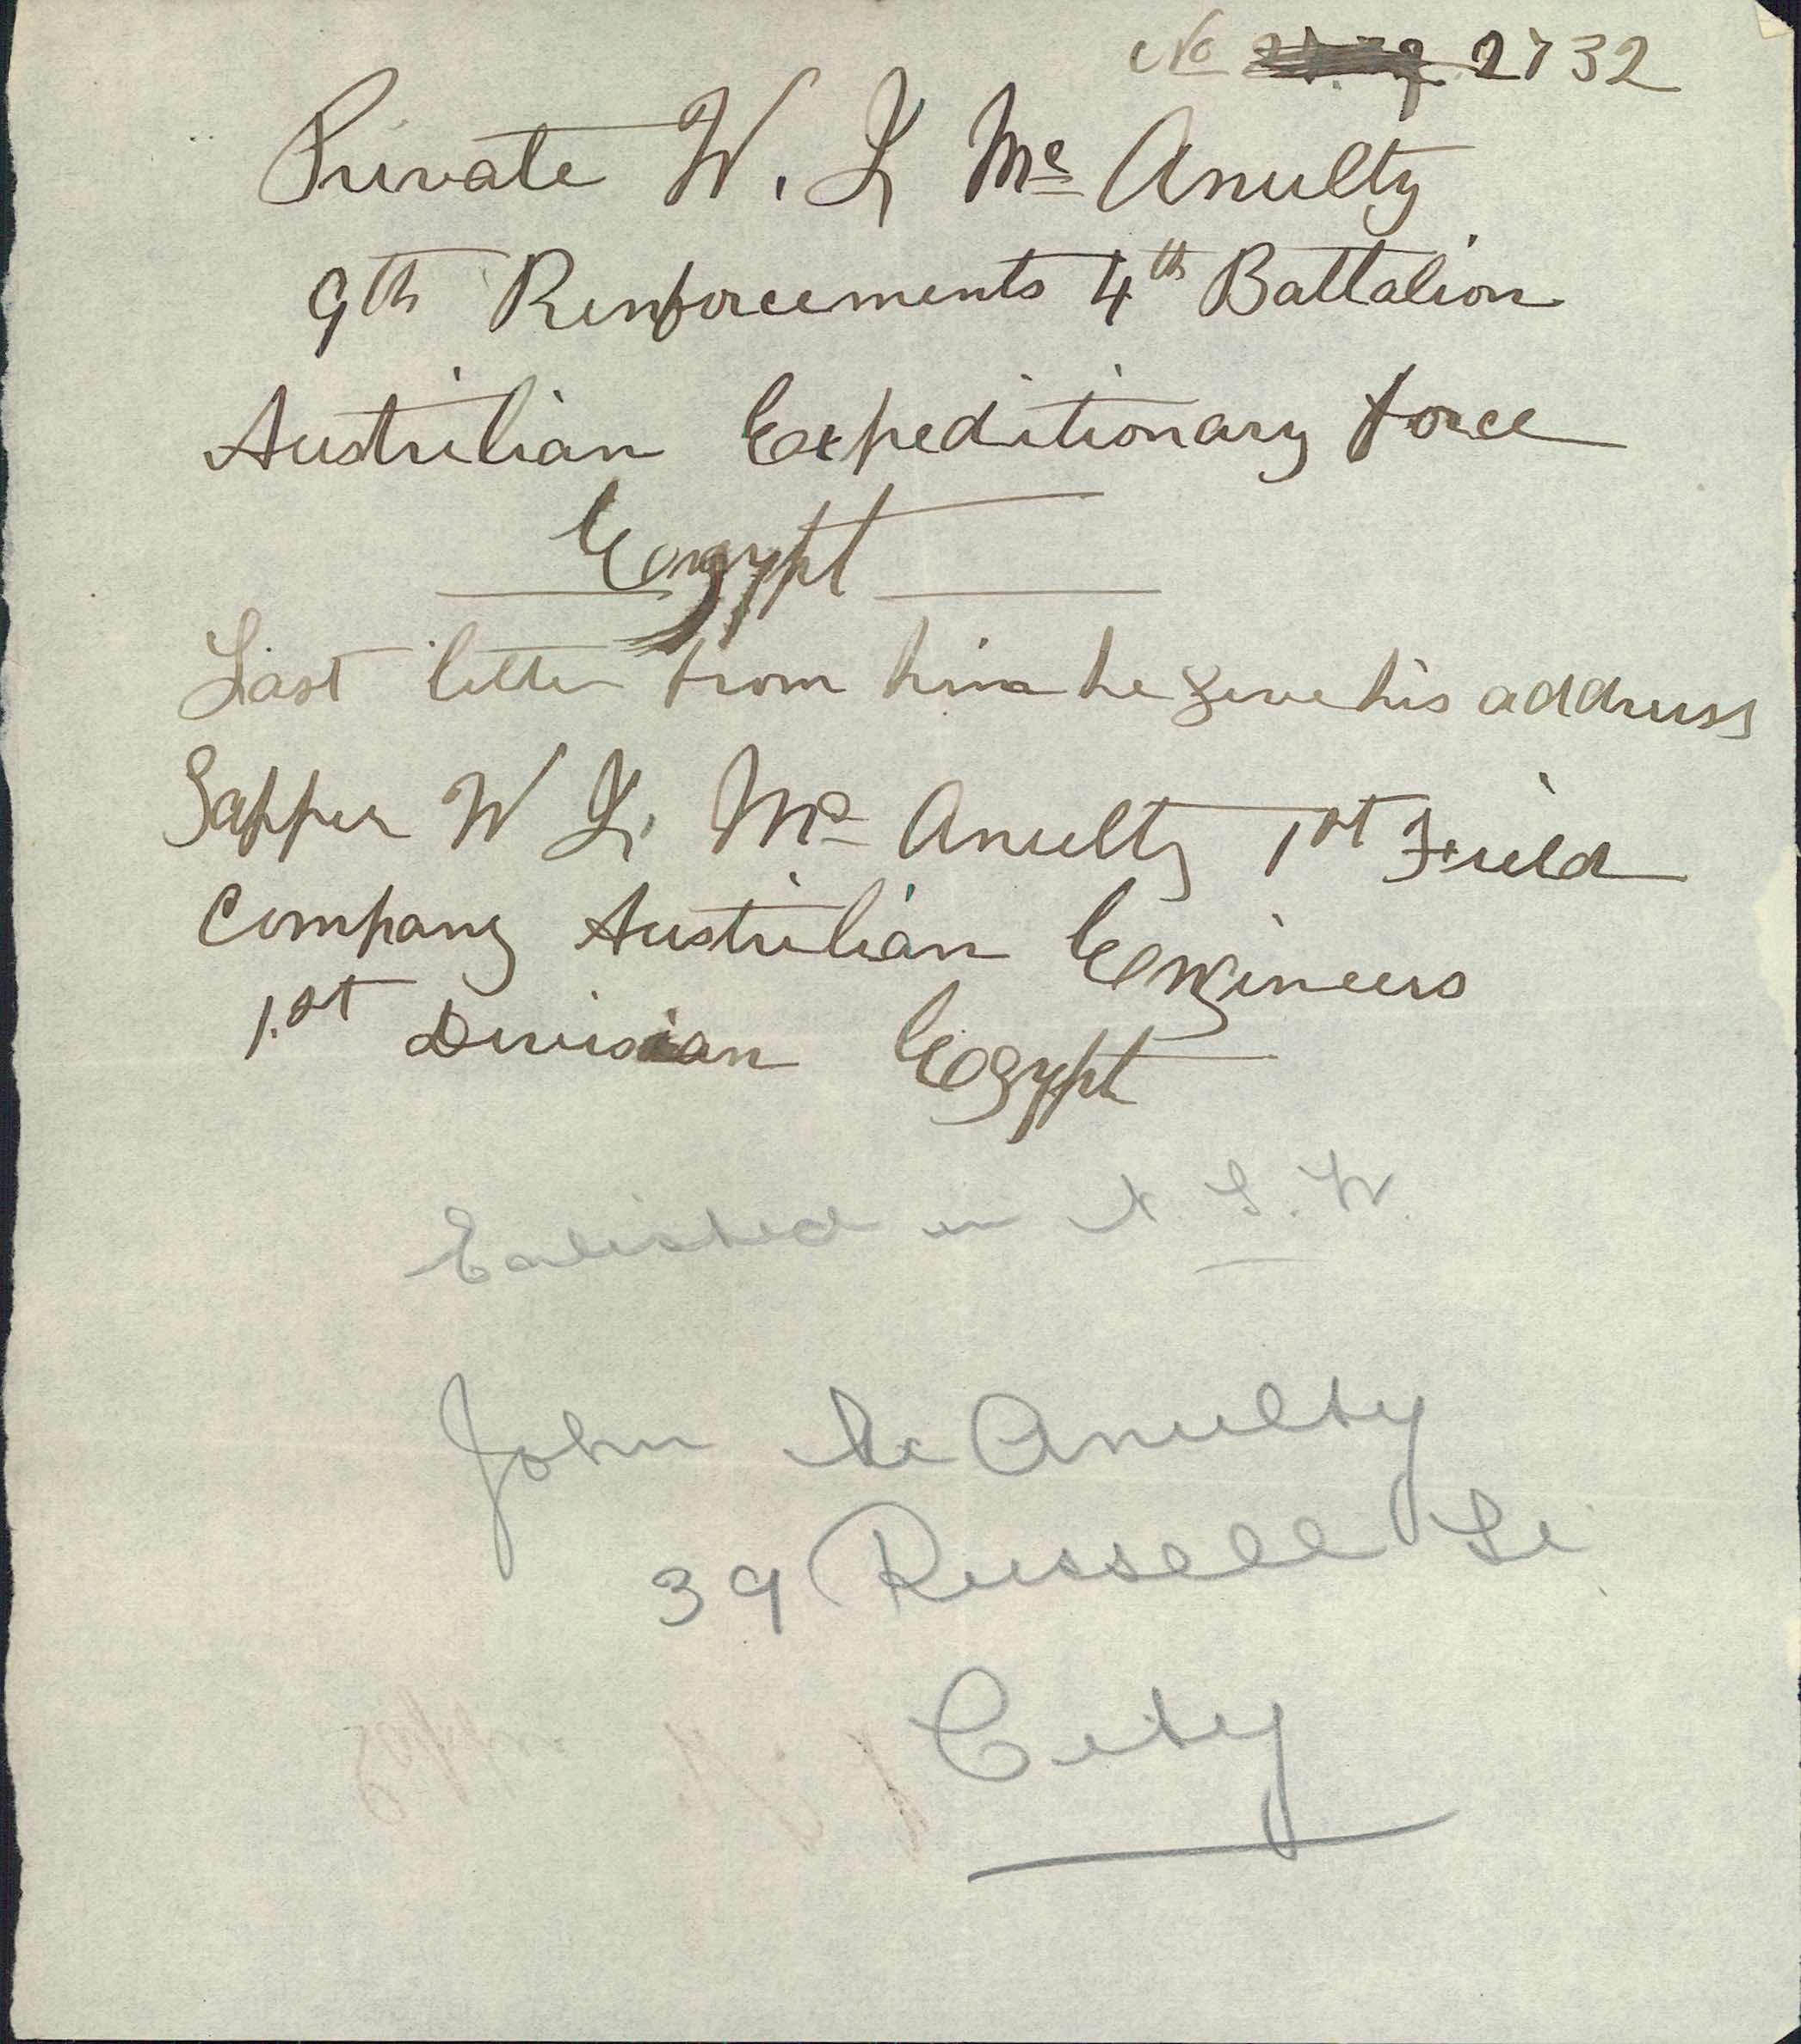 No 2732
Private W. L Mc Anulty
9th Renforcements 4th Battalion
Austrilian Expeditionary force
Egypt
Last letter from him he give his address
Sapper W L. Mc Anulty 1st Field
Company Austrilian Engineers
1.st Division Egypt
Enlisted in N. S. W.
John Mc Anulty
39 Russell St
City